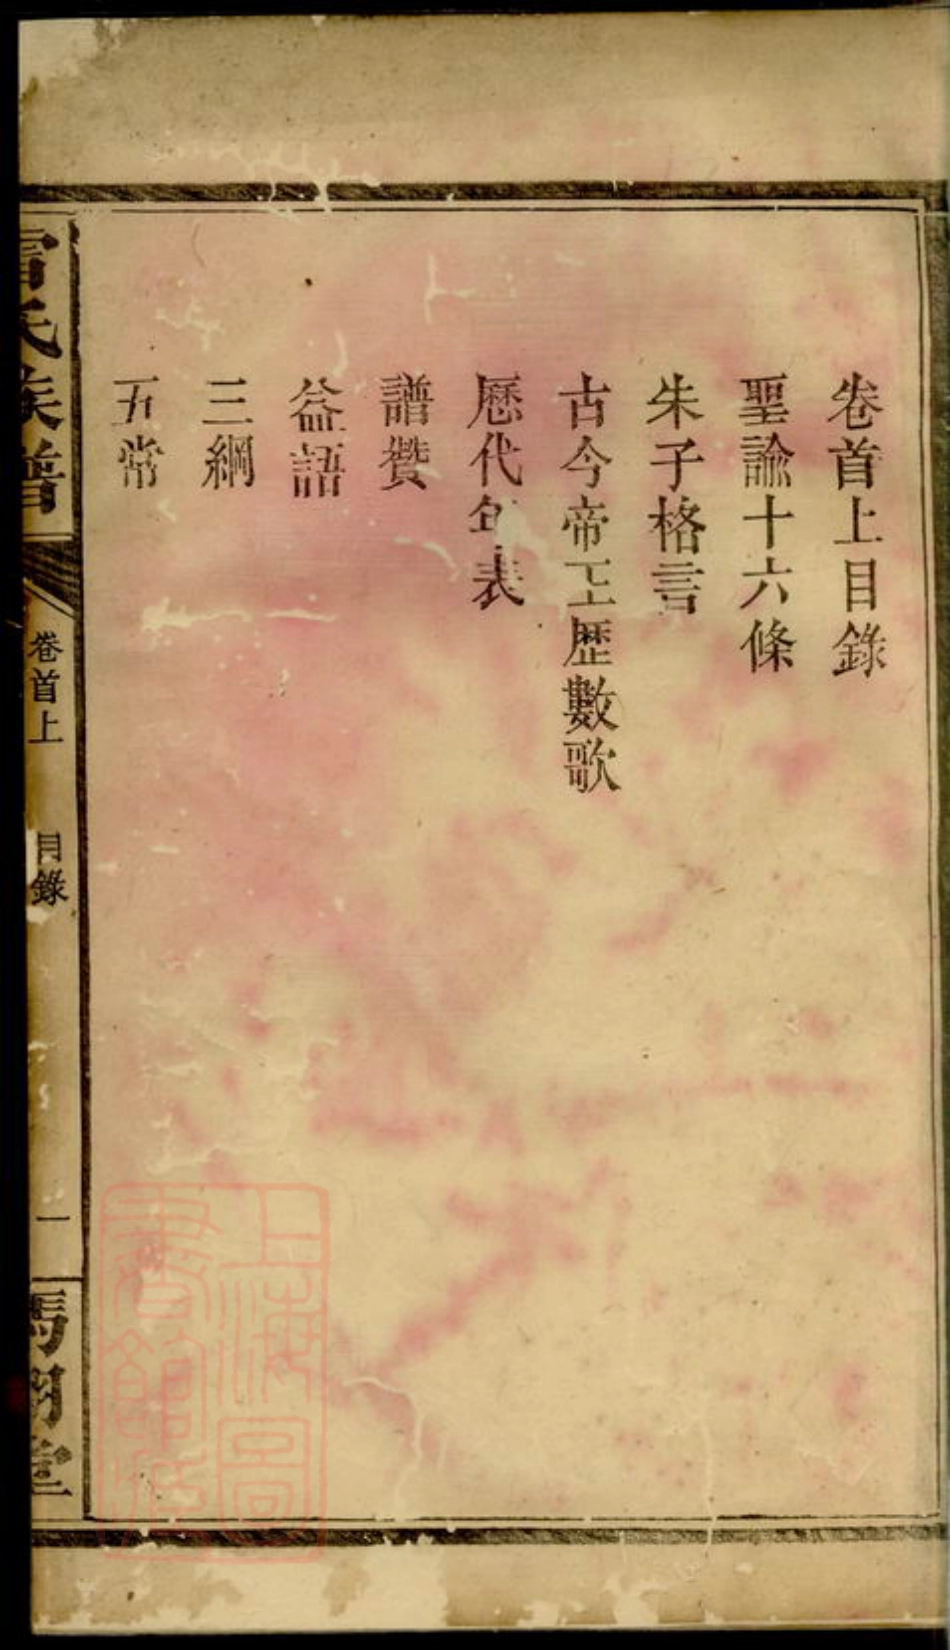 卷首上目錄
聖諭十六條
朱子格言
古今帝王歷數歌
歷代年表
譜贊
益語
三綱
五常
雷氏族譜
卷首上
目錄
一
馮翊堂
上海圖
書館藏